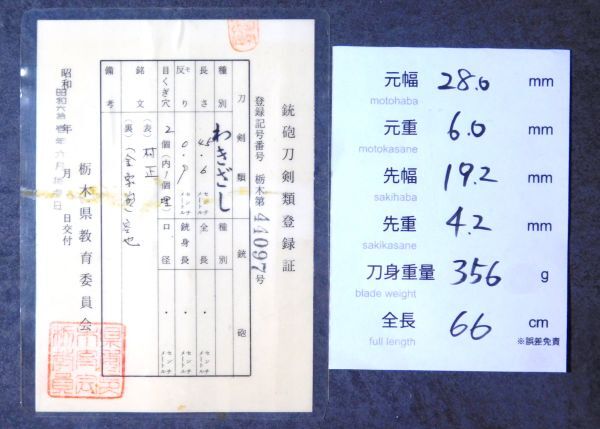 銃砲刀剣類登録証
登録記号番号 栃木第44097号
刀剣類
銃砲
種別
わきざし
種別
長さ
45.6
センチメートル
全長
・
センチメートル
反り
0.9
センチメートル
銃身長
・
センチメートル
目くぎ穴
2個(内1個埋)
口径
・
センチメートル
銘文
(表) 村正
(裏)
備考
昭和 年 月 日交付
栃木県教育委員会
元幅 28.0 mm
motohaba
元重 6.0 mm
motokasane
先幅 19.2 mm
sakihaba
先重 4.2 mm
sakikasane
刀身重量 356 g
blade weight
全長 66 cm
full length
※誤差免責